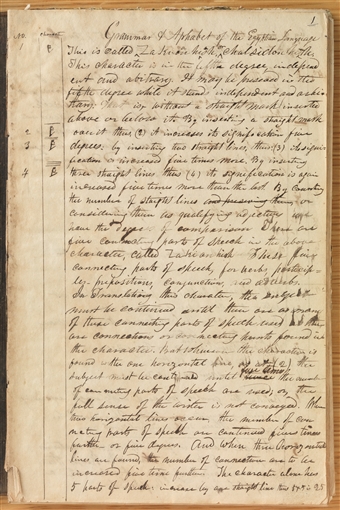 1
No. character
Grammar & Alphabet of the Egyptian Language
This is called Za Ki on hish, chalsidon hish
This character is in the fifth degree, independ
ent and arbitrary. It may be preserved in the
fifth degree while it stands independent and arbi
trary: That is, without a straight mark inserted
above or below it. By inserting a straight mark
over it thus (2) it increases its signification five
degrees: by inserting two straight lines, thus: (3) its signi
fication is increased five times more. By inserting
three straight lines thus (4) its signification is again
increased five times more than the last. By counting
the number of straight lines or
considering them as qualifying adjectives we
have the degrees of comparison There are
five connecting parts of speech in the above
character, called Za ki on hish These five
connecting parts of speech, for verbs, particip
les—prepositions, conjunctions, and adverbs.
In Translating this character, this subject
must be continued until there are as many
of these connecting parts of speech used as there
are connections or connecting points found in
the character. But whenever the character is
found with one horizontal line, as at (2) the
subject must be continued until five times the number
of connecting parts of speech are used; or, the
full sense of the writer is not conveyed. When
two horizontal lines occur, the number of con
necting parts of speech are continued five times
further—or five degrees. And when three horizontal
lines are found, the number of connections are to be
increased five times further. The character alone has
5 parts of speech: increase by one straight line thus 5 x 5 is 25
2
3
4